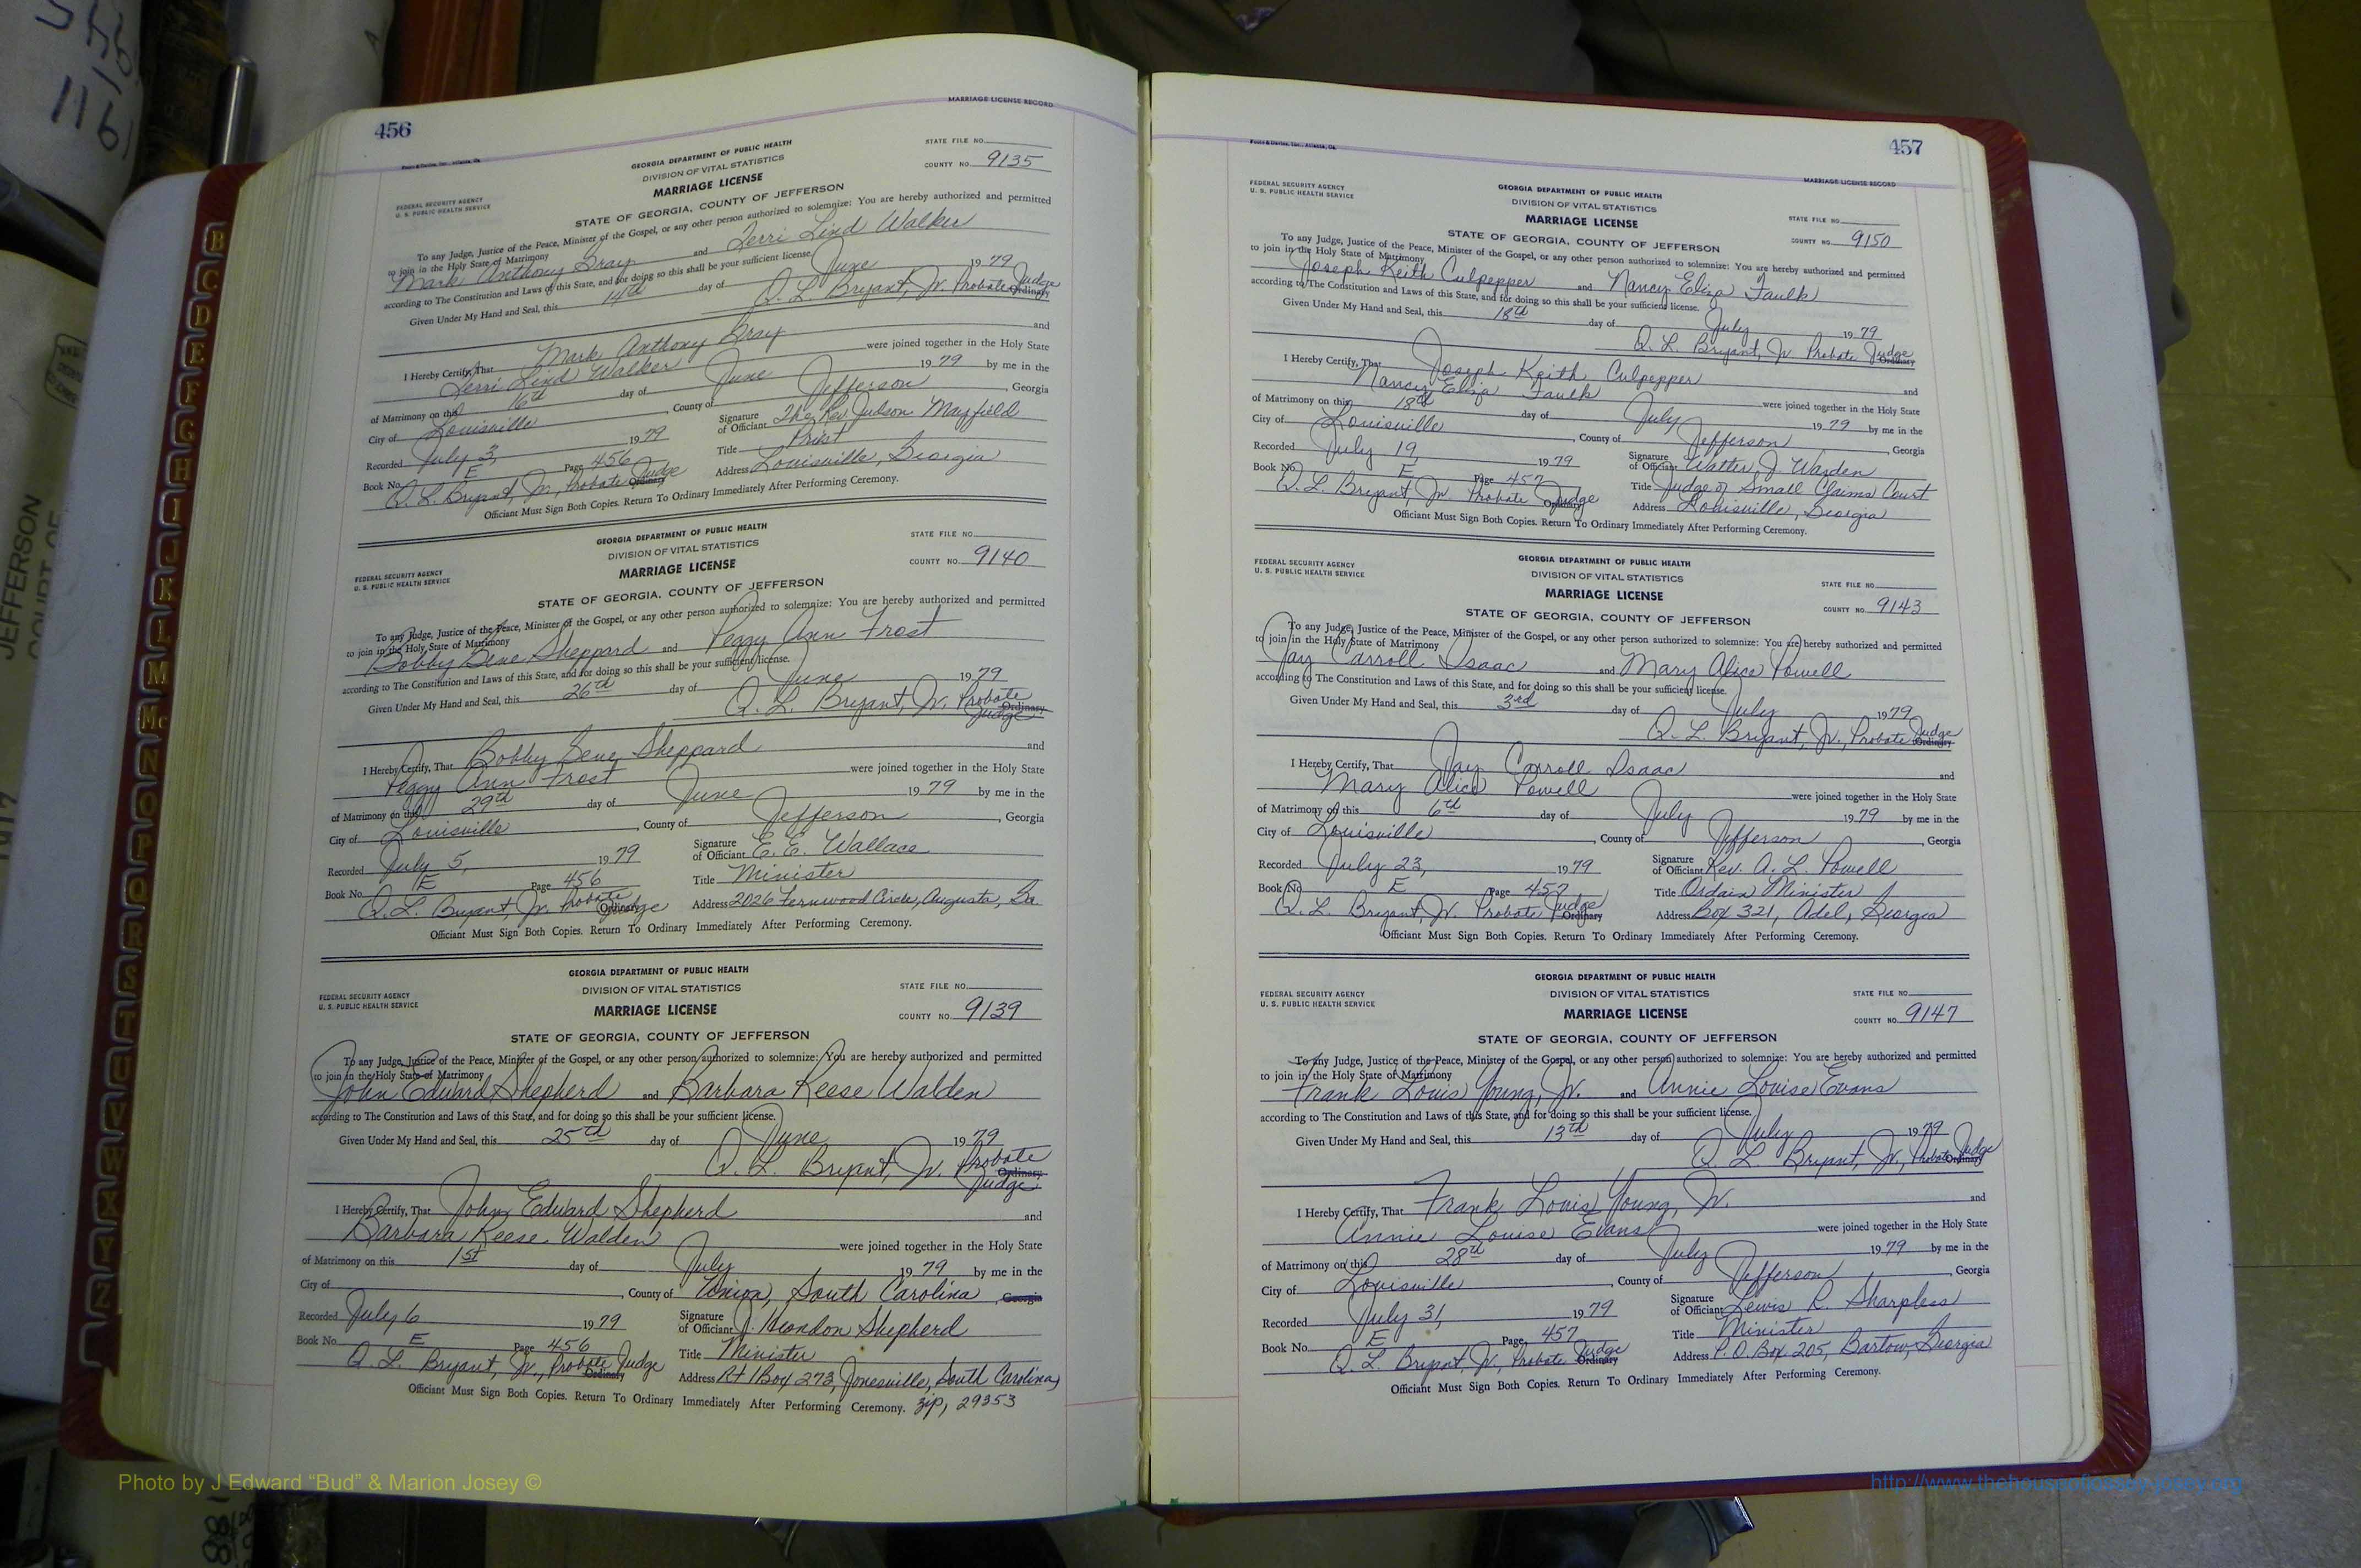 456
MARRIAGE LICENSE RECORD
GEORGIA DEPARTMENT OF PUBLIC HEALTH
DIVISION OF VITAL STATISTICS
MARRIAGE LICENSE
STATE FILE NO.
COUNTY NO. 9135
FEDERAL SECURITY AGENCY
U. S. PUBLIC HEALTH SERVICE
STATE OF GEORGIA, COUNTY OF JEFFERSON
To any Judge, Justice of the Peace, Minister of the Gospel, or any other person authorized to solemnize: You are hereby authorized and permitted
to join in the Holy State of Matrimony
Mark Anthony Gray and Terri Lind Walker
according to The Constitution and Laws of this State, and for doing so this shall be your sufficient license.
Given Under My Hand and Seal, this 14th day of June 1979
Q. L. Bryant, Jr. Probate Judge Ordinary
I Hereby Certify, That Mark Anthony Gray and
Terri Lind Walker were joined together in the Holy State
of Matrimony on this 16th day of June 1979 by me in the
City of Louisville, County of Jefferson, Georgia
Recorded July 3, 1979 Signature of Officiant The Rev. Judson Mayfield
Book No. E Page 456 Title Priest
Q. L. Bryant, Jr., Probate Judge Ordinary Address Louisville, Georgia
Officiant Must Sign Both Copies. Return To Ordinary Immediately After Performing Ceremony.
GEORGIA DEPARTMENT OF PUBLIC HEALTH
DIVISION OF VITAL STATISTICS
MARRIAGE LICENSE
STATE FILE NO.
COUNTY NO. 9140
FEDERAL SECURITY AGENCY
U. S. PUBLIC HEALTH SERVICE
STATE OF GEORGIA, COUNTY OF JEFFERSON
To any Judge, Justice of the Peace, Minister of the Gospel, or any other person authorized to solemnize: You are hereby authorized and permitted
to join in the Holy State of Matrimony
Bobby Gene Sheppard and Peggy Ann Frost
according to The Constitution and Laws of this State, and for doing so this shall be your sufficient license.
Given Under My Hand and Seal, this 26th day of June 1979
Q. L. Bryant, Jr. Probate Ordinary Judge
I Hereby Certify, That Bobby Gene Sheppard and
Peggy Ann Frost were joined together in the Holy State
of Matrimony on this 29th day of June 1979 by me in the
City of Louisville, County of Jefferson, Georgia
Recorded July 5, 1979 Signature of Officiant E. E. Wallace
Book No. E Page 456 Title Minister
Q. L. Bryant, Jr. Probate Ordinary Judge Address 2026 Fernwood Circle, Augusta, Ga.
Officiant Must Sign Both Copies. Return To Ordinary Immediately After Performing Ceremony.
GEORGIA DEPARTMENT OF PUBLIC HEALTH
DIVISION OF VITAL STATISTICS
MARRIAGE LICENSE
STATE FILE NO.
COUNTY NO. 9139
FEDERAL SECURITY AGENCY
U. S. PUBLIC HEALTH SERVICE
STATE OF GEORGIA, COUNTY OF JEFFERSON
To any Judge, Justice of the Peace, Minister of the Gospel, or any other person authorized to solemnize: You are hereby authorized and permitted
to join in the Holy State of Matrimony
John Edward Shepherd and Barbara Reese Walden
according to The Constitution and Laws of this State, and for doing so this shall be your sufficient license.
Given Under My Hand and Seal, this 25th day of June 1979
Q. L. Bryant, Jr. Probate Ordinary Judge
I Hereby Certify, That John Edward Shepherd and
Barbara Reese Walden were joined together in the Holy State
of Matrimony on this 1st day of July 1979 by me in the
City of , County of Union, South Carolina, Georgia
Recorded July 6 1979 Signature of Officiant J. Hendon Shepherd
Book No. E Page 456 Title Minister
Q. L. Bryant, Jr., Probate Judge Ordinary Address Rt 1 Box 273, Jonesville, South Carolina,
Officiant Must Sign Both Copies. Return To Ordinary Immediately After Performing Ceremony. zip, 29353
457
MARRIAGE LICENSE RECORD
FEDERAL SECURITY AGENCY
U. S. PUBLIC HEALTH SERVICE
GEORGIA DEPARTMENT OF PUBLIC HEALTH
DIVISION OF VITAL STATISTICS
MARRIAGE LICENSE
STATE FILE NO.
COUNTY NO. 9150
STATE OF GEORGIA, COUNTY OF JEFFERSON
To any Judge, Justice of the Peace, Minister of the Gospel, or any other person authorized to solemnize: You are hereby authorized and permitted
to join in the Holy State of Matrimony
Joseph Keith Culpepper and Nancy Eliza Faulk
according to The Constitution and Laws of this State, and for doing so this shall be your sufficient license.
Given Under My Hand and Seal, this 18th day of July 1979
Q. L. Bryant, Jr. Probate Judge Ordinary
I Hereby Certify, That Joseph Keith Culpepper and
Nancy Eliza Faulk were joined together in the Holy State
of Matrimony on this 18th day of July 1979 by me in the
City of Louisville, County of Jefferson, Georgia
Recorded July 19, 1979 Signature of Officiant Walter J. Warden
Book No. E Page 457 Title Judge of Small Claims Court
Q. L. Bryant, Jr. Probate Judge Ordinary Address Louisville, Georgia
Officiant Must Sign Both Copies. Return To Ordinary Immediately After Performing Ceremony.
GEORGIA DEPARTMENT OF PUBLIC HEALTH
DIVISION OF VITAL STATISTICS
MARRIAGE LICENSE
FEDERAL SECURITY AGENCY
U. S. PUBLIC HEALTH SERVICE
STATE FILE NO.
COUNTY NO. 9143
STATE OF GEORGIA, COUNTY OF JEFFERSON
To any Judge, Justice of the Peace, Minister of the Gospel, or any other person authorized to solemnize: You are hereby authorized and permitted
to join in the Holy State of Matrimony
Jay Carroll Isaac and Mary Alice Powell
according to The Constitution and Laws of this State, and for doing so this shall be your sufficient license.
Given Under My Hand and Seal, this 3rd day of July 1979
Q. L. Bryant, Jr., Probate Judge Ordinary
I Hereby Certify, That Jay Carroll Isaac and
Mary Alice Powell were joined together in the Holy State
of Matrimony on this 6th day of July 1979 by me in the
City of Louisville, County of Jefferson, Georgia
Recorded July 23, 1979 Signature of Officiant Rev. A. L. Powell
Book No. E Page 457 Title Ordain Minister
Q. L. Bryant, Jr. Probate Judge Ordinary Address Box 321, Adel, Georgia
Officiant Must Sign Both Copies. Return To Ordinary Immediately After Performing Ceremony.
GEORGIA DEPARTMENT OF PUBLIC HEALTH
DIVISION OF VITAL STATISTICS
MARRIAGE LICENSE
FEDERAL SECURITY AGENCY
U. S. PUBLIC HEALTH SERVICE
STATE FILE NO.
COUNTY NO. 9147
STATE OF GEORGIA, COUNTY OF JEFFERSON
To any Judge, Justice of the Peace, Minister of the Gospel, or any other person authorized to solemnize: You are hereby authorized and permitted
to join in the Holy State of Matrimony
Frank Louis Young, Jr. and Annie Louise Evans
according to The Constitution and Laws of this State, and for doing so this shall be your sufficient license.
Given Under My Hand and Seal, this 13th day of July 1979
Q. L. Bryant, Jr., Probate Judge Ordinary
I Hereby Certify, That Frank Louis Young, Jr. and
Annie Louise Evans were joined together in the Holy State
of Matrimony on this 28th day of July 1979 by me in the
City of Louisville, County of Jefferson, Georgia
Recorded July 31, 1979 Signature of Officiant Lewis R. Sharpless
Book No. E Page 457 Title Minister
Q. L. Bryant, Jr., Probate Judge Ordinary Address P.O. Box 205, Bartow, Georgia
Officiant Must Sign Both Copies. Return To Ordinary Immediately After Performing Ceremony.
B
C
D
E
F
G
H
I
J
K
L
M
Mc
N
O
P
Q
R
S
T
U
V
W
X
Y
Z
JEFFERSON
Photo by J Edward “Bud” & Marion Josey ©